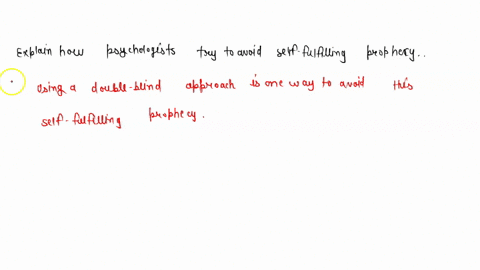 Explain how psychologists try to avoid self-fulfilling prophecy..
Using a double-blind approach is one way to avoid this
self-fulfilling prophecy.